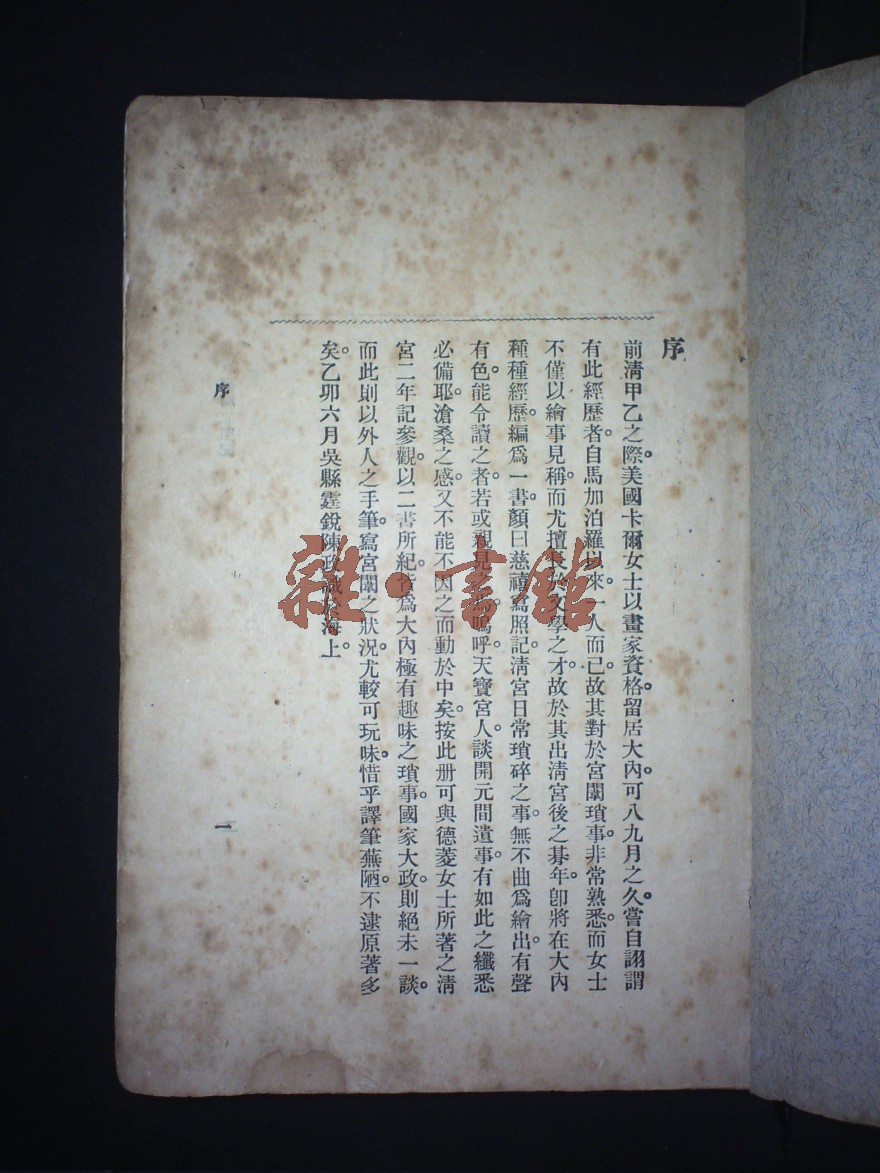 序
前清甲乙之際。美國卡爾女士以畫家資格。留居大內。可八九月之久。嘗自詡謂
有此經歷者。自馬加泊羅以來。一人而已。故其對於宮闈瑣事。非常熟悉。而女士
不僅以繪事見稱。而尤擅長於文學之才。故於其出清宮後之朞年。卽將在大內
種種經歷。編爲一書。顏曰慈禧寫照記。清宮日常瑣碎之事。無不曲爲繪出。有聲
有色。能令讀之者。若或親見之。嗚呼。天寶宮人。談開元間遺事。有如此之纖悉
必備耶。滄桑之感。又不能不因之而動於中矣。按此册可與德菱女士所著之清
宮二年記參觀。以二書所紀。皆爲大內極有趣味之瑣事。國家大政。則絕未一談。
而此則以外人之手筆。寫宮闈之狀況。尤較可玩味。惜乎譯筆蕪陋。不逮原著多
矣。乙卯六月吳縣霆銳陳政識於海上。
序
一
雜·書館